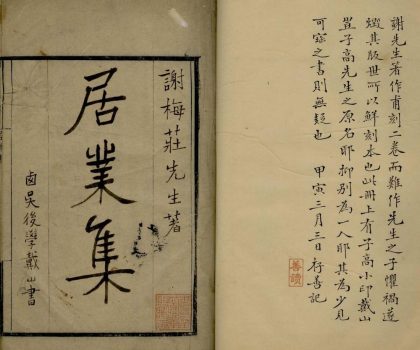 謝梅莊先生著
居業集
鹵吳後學戴山書
謝先生著作甫刻二卷而難作先生之子懼禍遂
燬其版世所以鮮刻本也此冊上有子高小印戴山
豈子高先生之原名耶抑别為一人耶其為少見
可寳之書則無疑也 甲寅三月三日行善記
善讀